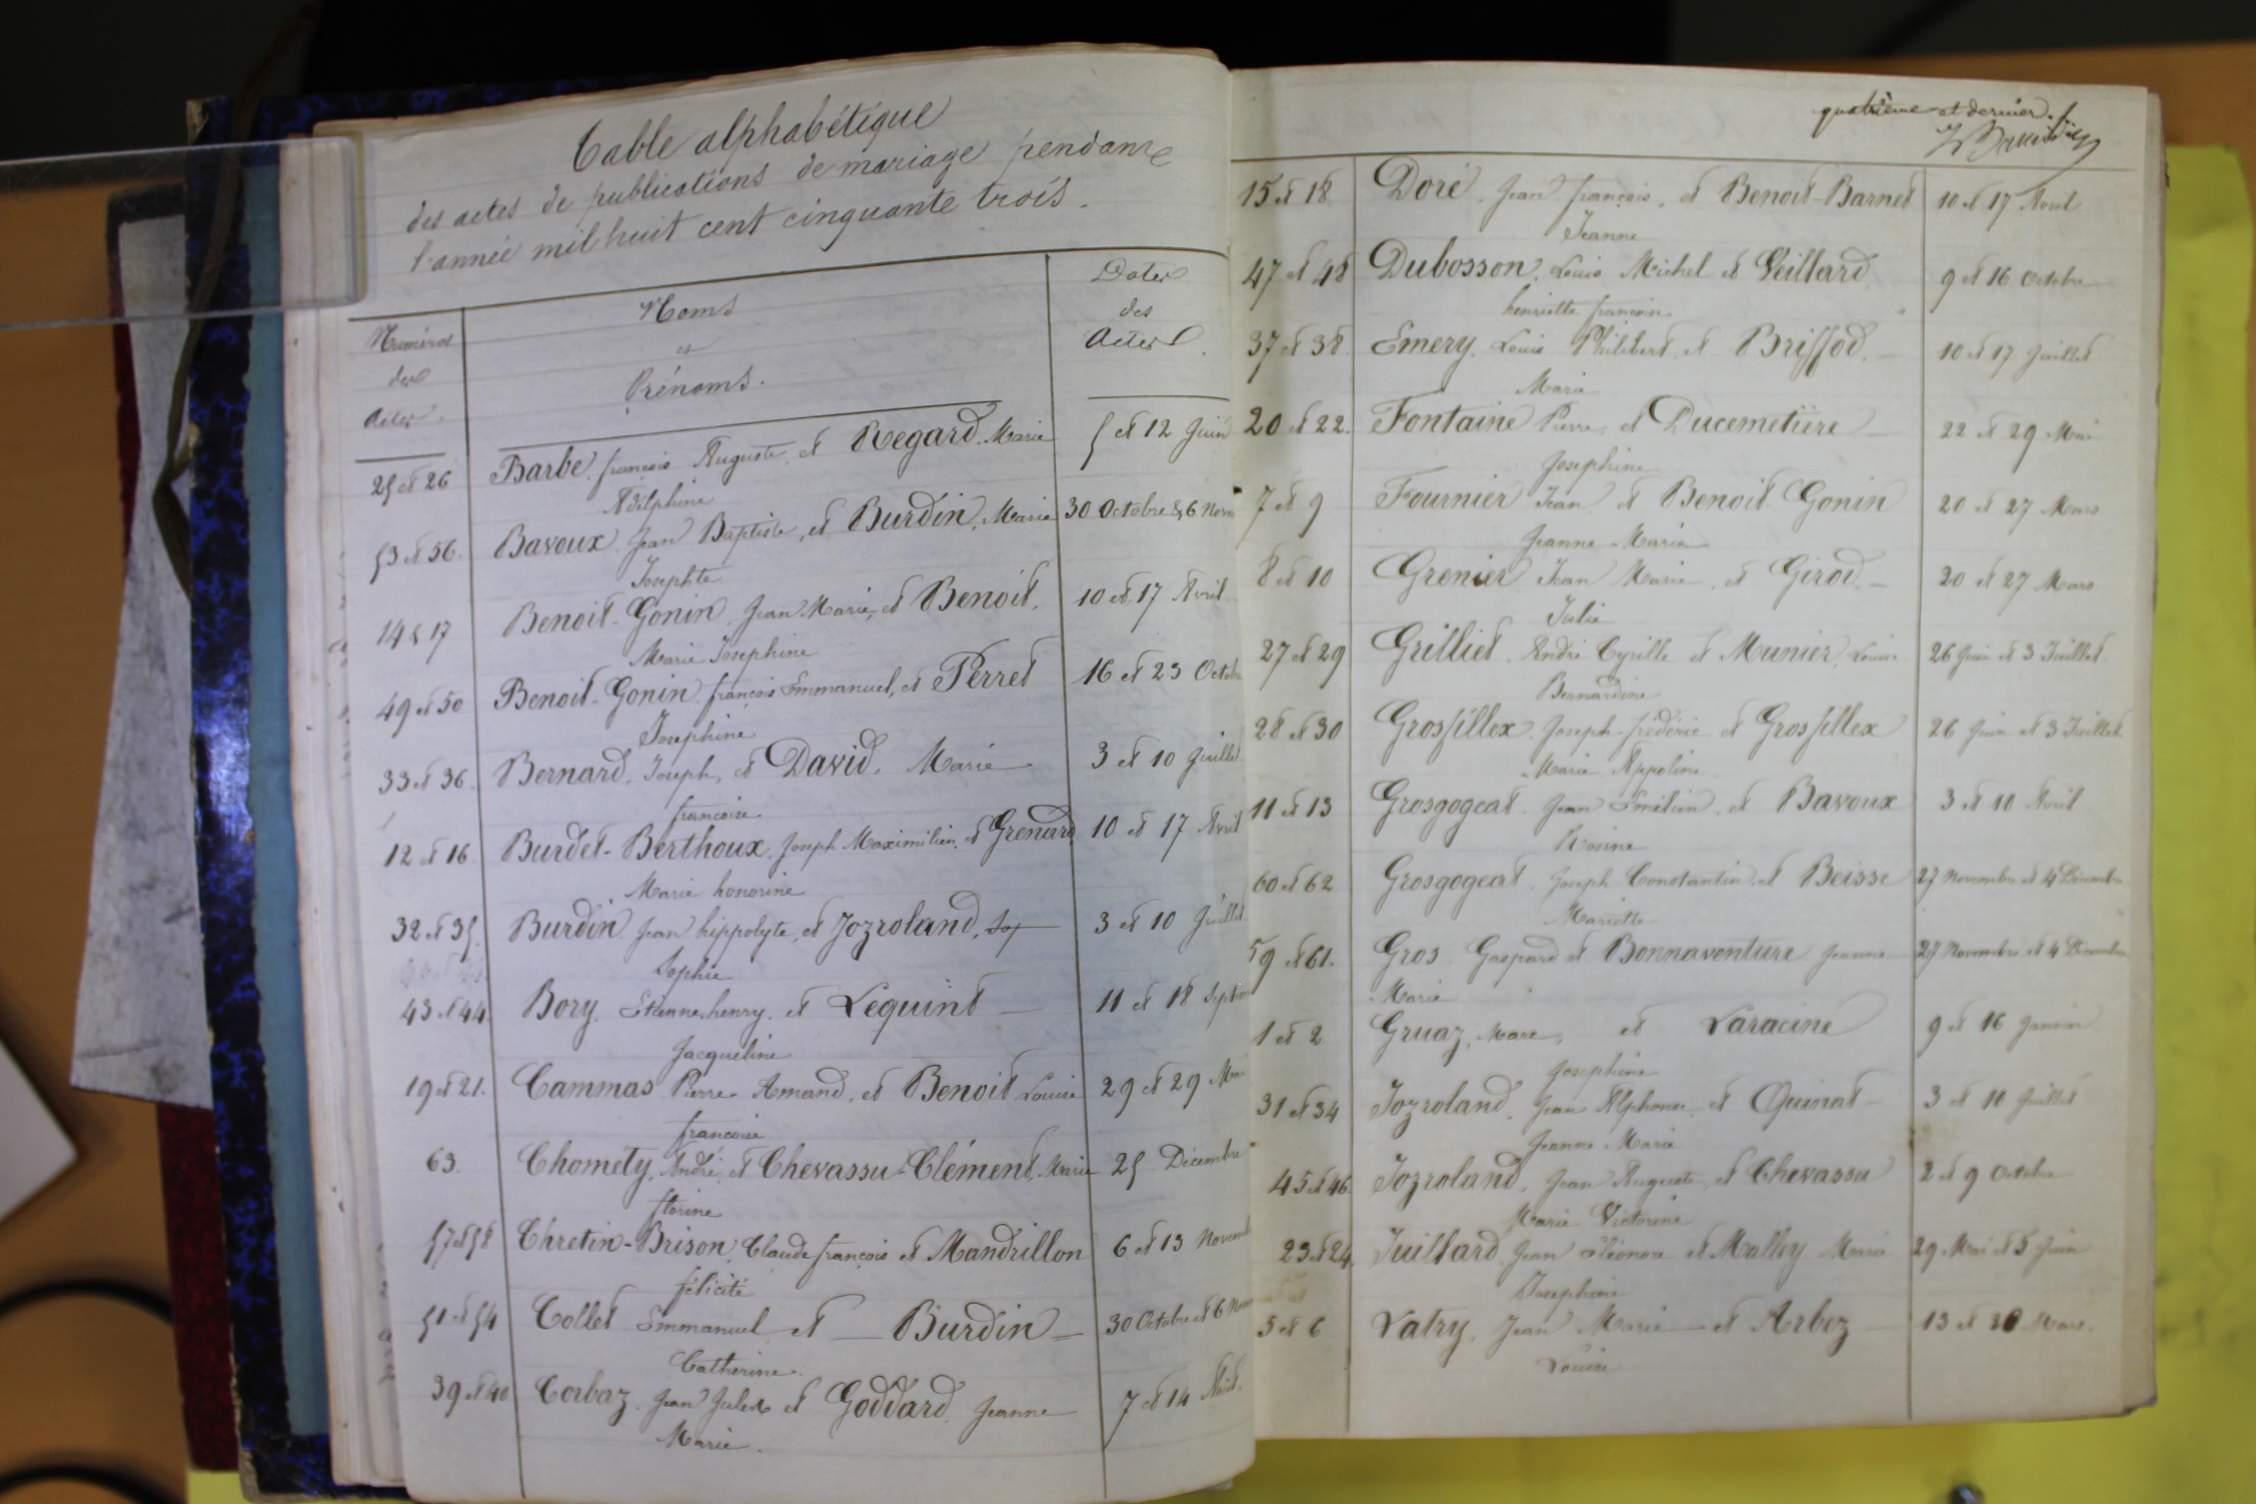 Table alphabétique
des actes de publications de mariage pendant
l'année mil huit cent cinquante trois.
Numéros des Actes. Noms et Prénoms. Dates des Actes.
25 et 26 Barbe, françois Auguste, et Regard, Marie 5 et 12 Juin
Adelphine
53 et 56. Bavoux Jean Baptiste, et Burdin, Marie 30 Octobre & 6 Nove
Josephte
14 & 17 Benoit-Gonin, Jean Marie, et Benoit, 10 et 17 Avril
Marie Josephine
49 et 50 Benoit-Gonin françois Emmanuel, et Perret 16 et 23 Octob
Josephine
33 et 36. Bernard, Joseph, et David, Marie 3 et 10 Juillet
francoise
12 et 16 Burdet-Berthoux, Joseph Maximilien, et Grenard 10 et 17 Avril
Marie honorine
32 et 35. Burdin Jean hippolyte, et Jozroland, 3 et 10 Juillet
Sophie
43 et 44 Bory, Etienne henry, et Lequint 11 et 18 Septem
Jacqueline
19 et 21. Cammas Pierre Amand, et Benoit Louise 29 et 29 Mai
francoise
63. Chomety, André, et Chevassu-Clément, Marie 25 Décembre
florine
57 et 58 Chretin-Brison, Claude françois et Mandrillon 6 et 13 Novemb
félicité
51 et 54 Collet Emmanuel et Burdin 30 Octobre et 6 Nov
Catherine.
39 et 40 Corbaz, Jean Jules et Goddard, Jeanne 7 et 14 Août.
Marie.
quatrième et dernier.
15 et 18 Doré, Jean françois, et Benoit-Barnet 10 et 17 Avril
Jeanne
47 et 48 Dubosson, Louis Michel et Veillard 9 et 16 Octobre
henriette francoise
37 et 38. Emery, Louis Philibert, et Briffod. 10 et 17 Juillet
Marie
20 et 22. Fontaine Pierre, et Ducemetière 22 et 29 Mai
Josephine
7 et 9 Fournier Jean, et Benoit Gonin 20 et 27 Mars
Jeanne-Marie
8 et 10 Grenier Jean Marie, et Girod. 20 et 27 Mars
Julie
27 et 29 Grilliet, André Cyrille et Munier, Louise 26 Juin et 3 Juillet
Bernardine
28 et 30 Grosfillex, Joseph-frédéric et Grosfillex 26 Juin et 3 Juillet
Marie Appoline
11 et 13 Grosgogeat, Jean Emilien, et Bavoux 3 et 10 Avril
Rosine
60 et 62 Grosgogeat, Joseph Constantin, et Beisse 27 Novembre et 4 Décembre
Mariette
59 et 61. Gros Gaspard et Bonnaventure Jeanne 27 Novembre et 4 Décembre
Marie
1 et 2 Gruaz, Marc, et Laracine 9 et 16 Janvier
Josephine
31 et 34 Jozroland, Jean Alphonse, et Quinat 3 et 10 Juillet
Jeanne Marie
45 et 46. Jozroland, Jean Auguste, et Chevassu 2 et 9 Octobre
Marie Victorine
23 et 24. Juillard Jean Eléonore et Malley Marie 29 Mai et 5 Juin
Josephine
5 et 6 Latry, Jean Marie et Arbez 13 et 20 Mars.
Louise